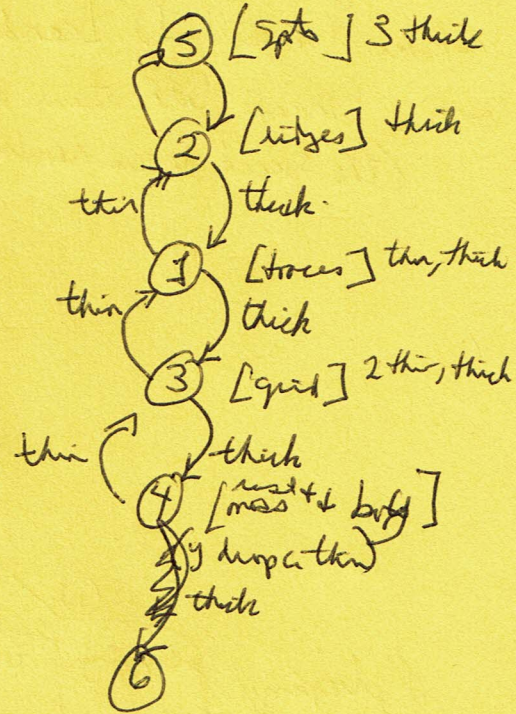 5 [Spts] 3 thick
2 [ridges] thick
thin thick.
1 [traces] thin, thick
thin thick
3 [grid] 2 thin, thick
thin thick
4 [ ]
thick
6